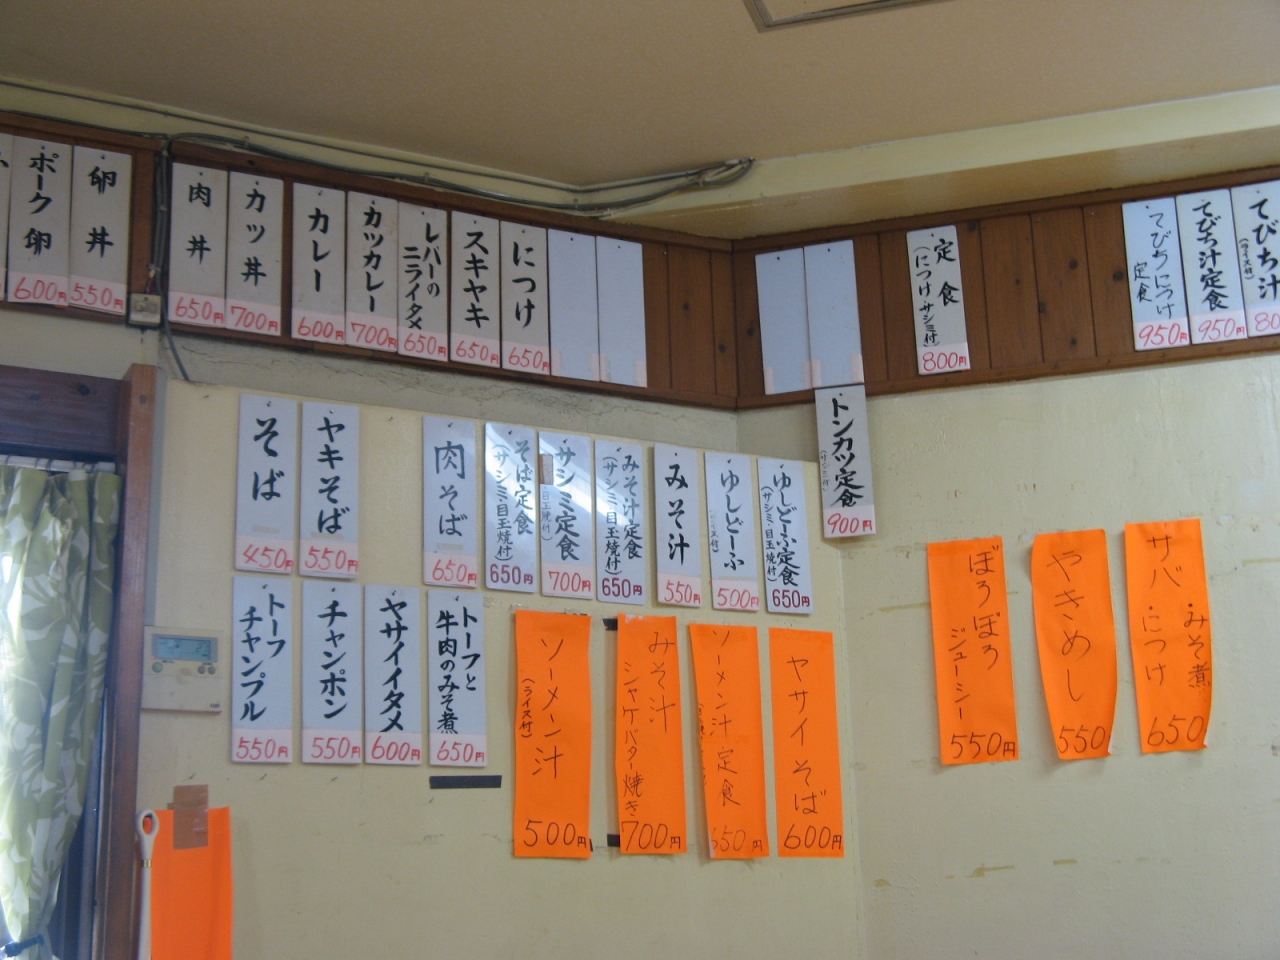 ポーク卵
600円
卵丼
550円
肉丼
650円
カツ丼
700円
カレー
600円
カツカレー
700円
レバーの
ニライタメ
650円
スキヤキ
650円
につけ
650円
定食
(につけサシミ付)
800円
てびちにつけ
定食
950円
てびち汁定食
950円
てびち汁
(ライス付)
80
トンカツ定食
(サシミ付)
900円
そば
450円
ヤキそば
550円
肉そば
650円
そば定食
(サシミ・目玉焼付)
650円
サシミ定食
目玉焼付)
700円
みそ汁定食
(サシミ・目玉焼付)
650円
みそ汁
550円
ゆしどーふ
(ライス付)
500円
ゆしどーふ定食
(サシミ・目玉焼付)
650円
トーフ
チャンプル
550円
チャンポン
550円
ヤサイイタメ
600円
トーフと
牛肉のみそ煮
650円
ソーメン汁
(ライス付)
500円
みそ汁
シャケバター焼き
700円
ソーメン汁定食
650円
ヤサイそば
600円
ぼろぼろ
ジューシー
550円
やきめし
550
サバ・みそ煮
・につけ
650